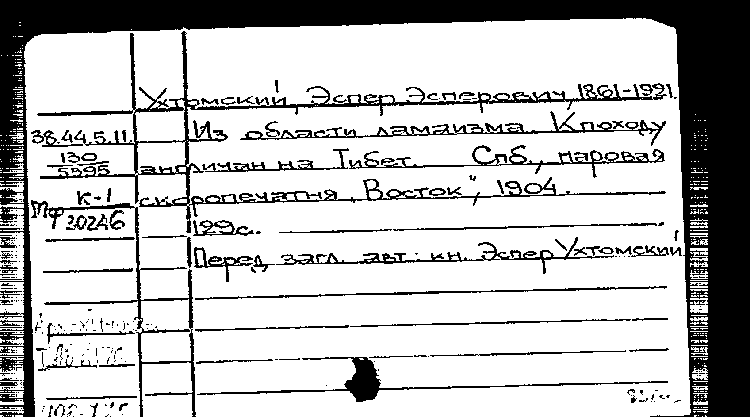 Ухтомский, Эспер Эсперович, 1861-1921.
38.44.5.11. Из области ламаизма. К походу
130
5595 англичан на Тибет. Спб., паровая
К-1 скоропечатня „Восток", 1904.
Мф 20246
129с.
Перед загл. авт: кн. Эспер Ухтомский